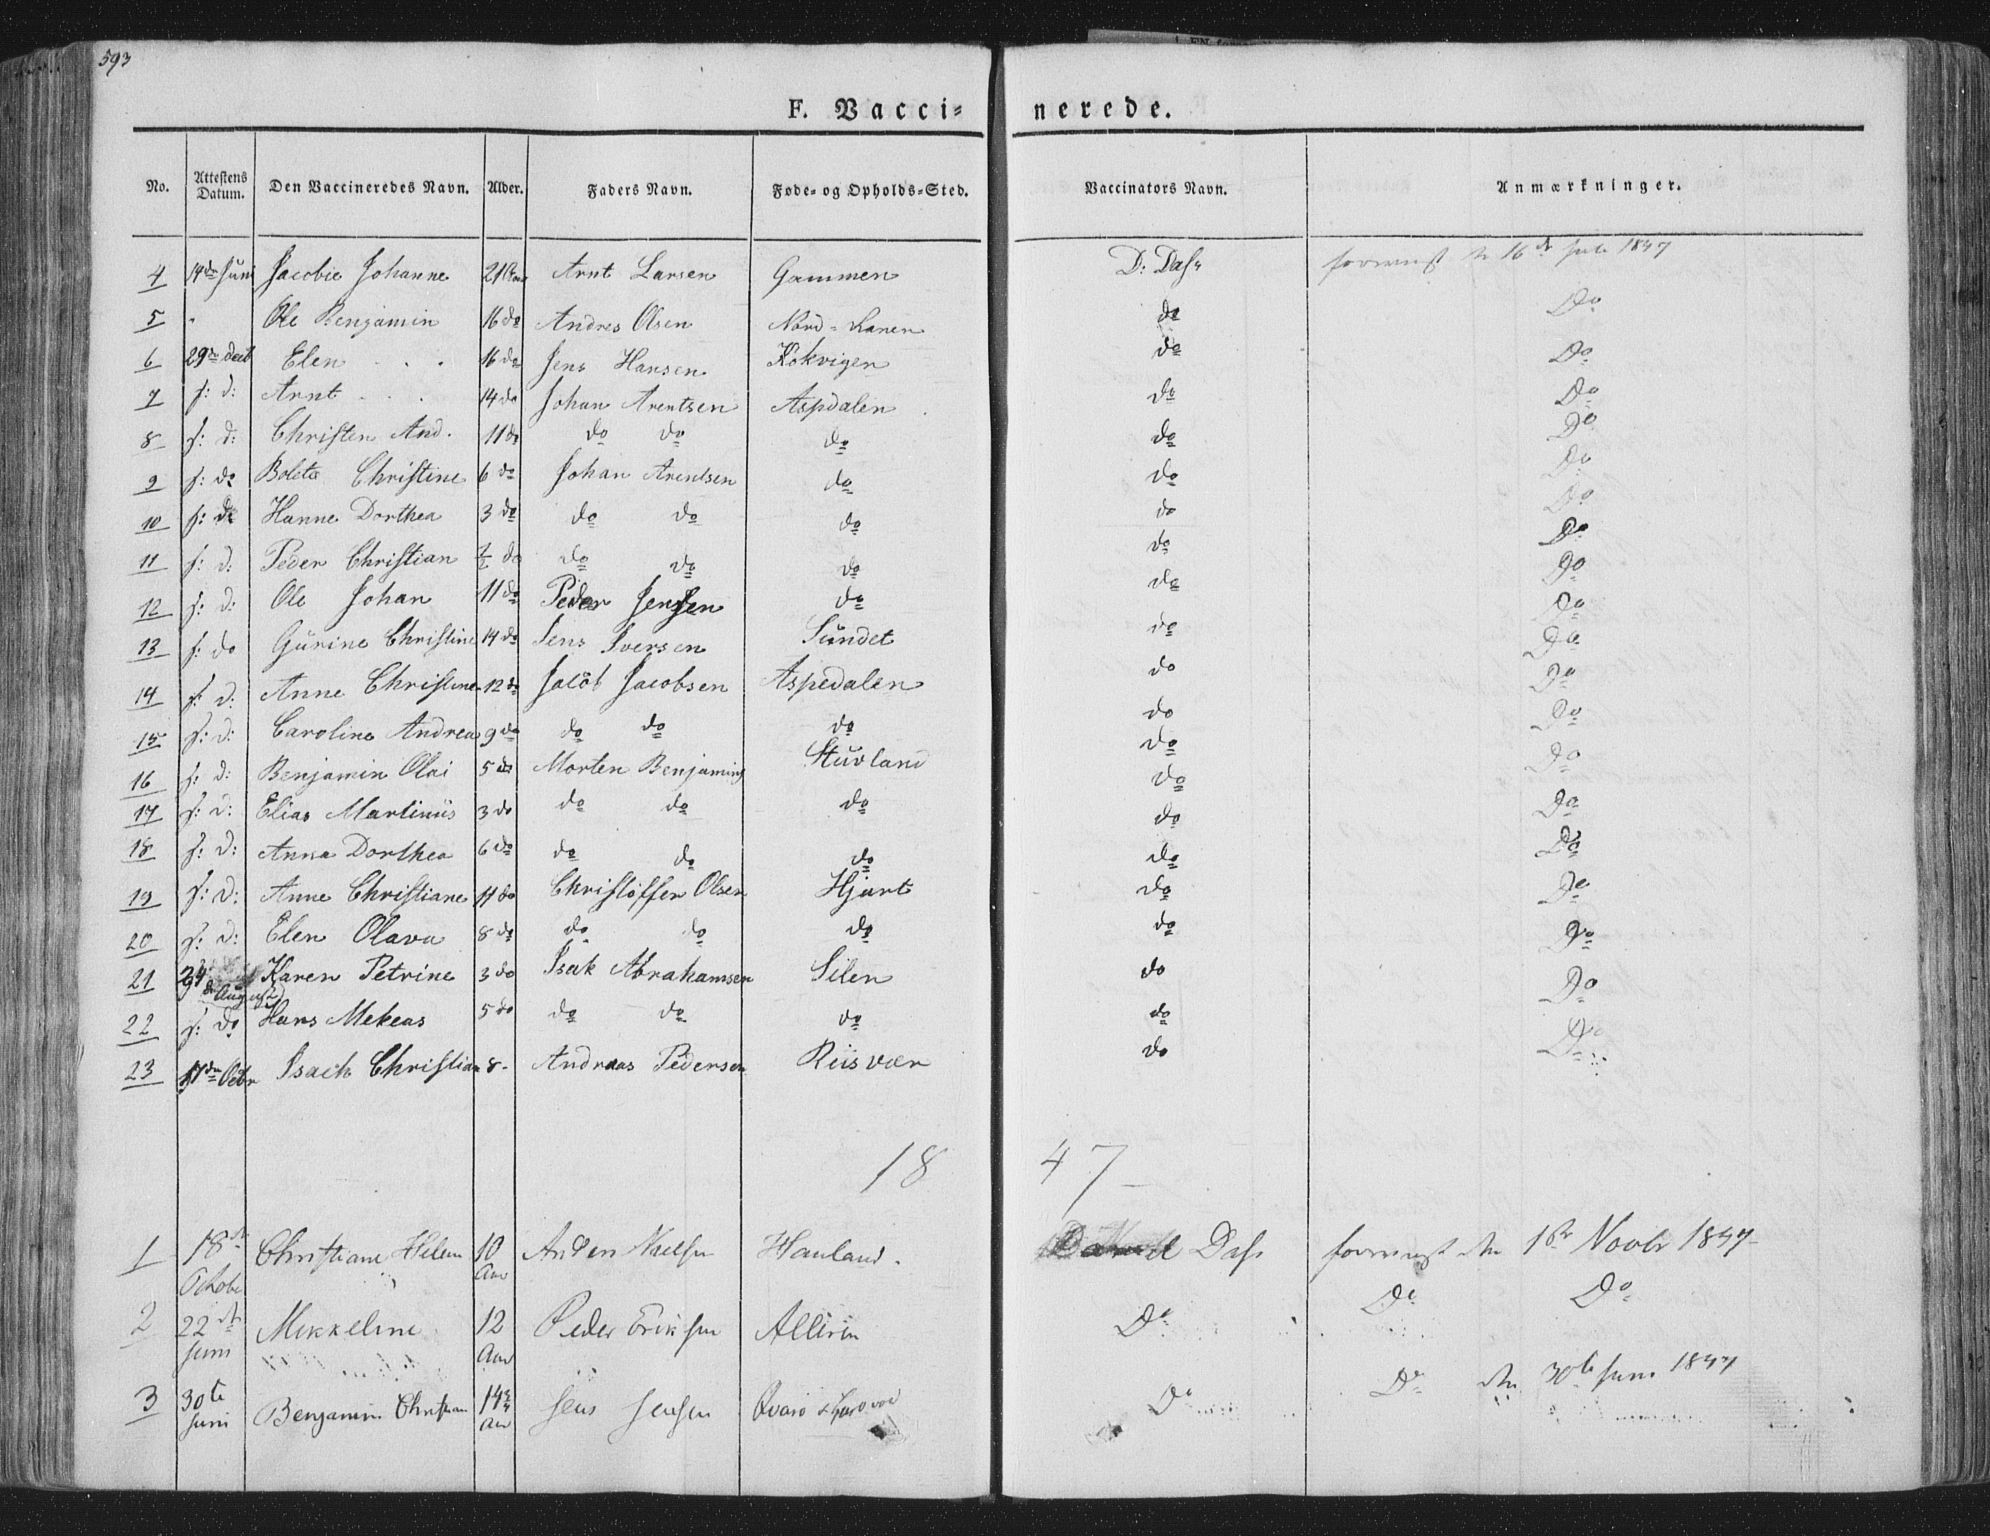 593
F. Vacci- nerede.
No. Attestens Datum. Den Vaccineredes Navn. Alder. Faders Navn. Føde- og Opholds-Sted. Vaccinators Navn. Anmærkninger.
4 14de Juni Jacobie Johanne 21 Aar Arnt Larsen Gammen D: Dass 16de 1847
5 " Ole Benjamin 16 do Andres Olsen Nord-Ranen do Do
6 29de Elen 16 do Jens Hansen Kokvigen do Do
7 s: d: Arnt 14 do Johan Arentsen Aspdalen do Do
8 s: d: Christen And. 11 do do do do do Do
9 s: do Boleta Christine 6 do Johan Arentsen do do Do
10 s: do Hanne Dorthea 3 do do do do do Do
11 s: d: Peder Christian 1/2 do do do do do Do
12 s: d: Ole Johan 11 do Peder Jensen do do Do
13 s: do Gurine Christine 14 do Jens Iversen Sundet do Do
14 s: d: Anne Christine 12 do Jacob Jacobsen Aspedalen do Do
15 s: d: Caroline Andrea 9 do do do do do Do
16 s: d: Benjamin Olai 5 do Morten Benjamins Stuvland do Do
17 s: d: Elias Martinus 3 do do do do do Do
18 s: d: Anna Dorthea 6 do do do do do Do
19 s: d: Anne Christiane 11 do Christoffer Olsen Hjart do Do
20 s: d: Elen Olava 8 do do do do do Do
21 24de August Karen Petrine 3 do Isak Abrahamsen Silen do Do
22 s: do Hans Mekeas 5 do do do do do Do
23 17de Octbr Isach Christian 8 - Andreas Pedersen Riisvær do Do
18 47
1 18de Octobr Christiane Helene 10 Aar Anders Nielsen Havland. Dass Novbr 1847
2 22de Juni Mikkeline 12 Aar Peder Eriksen Do Do Do
3 30te Juni Benjamin Christian 14 Aar Jens Jensen Do Do 30te Juni 1847